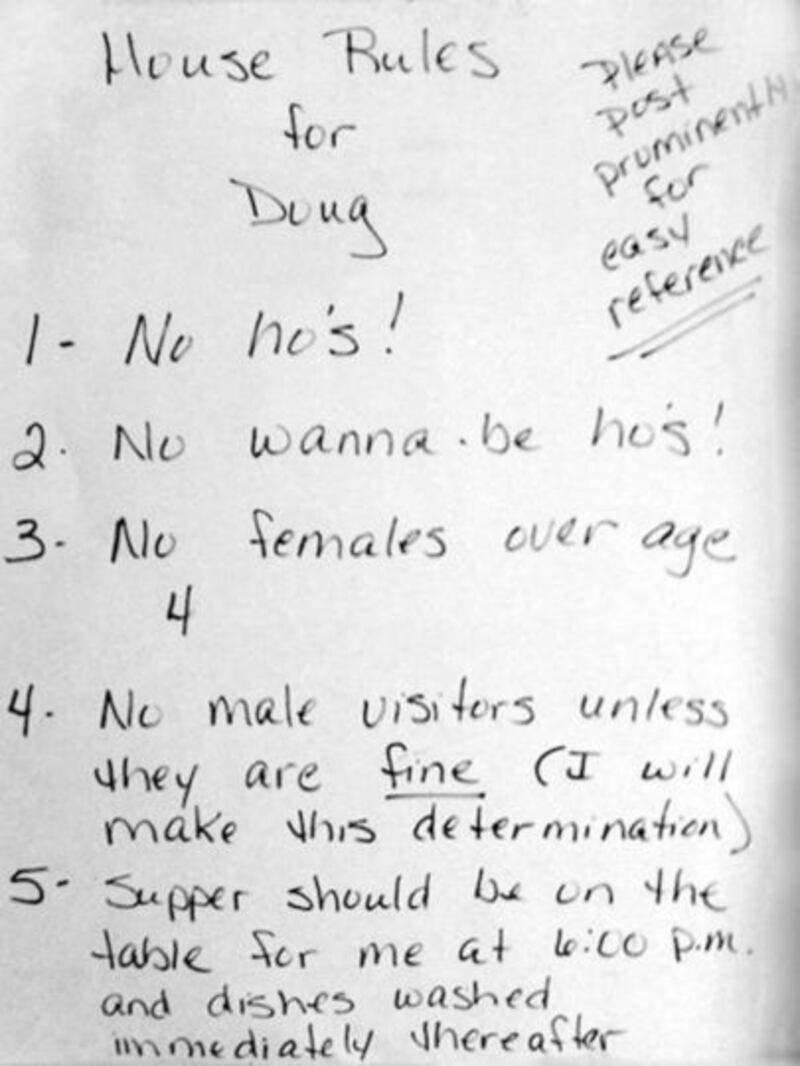 House Rules
for
Doug
Please
post
prominently
for
easy
reference
1- No ho's!
2. No wanna-be ho's!
3- No females over age
4
4. No male visitors unless
they are fine (I will
make this determination)
5- Supper should be on the
table for me at 6:00 p.m.
and dishes washed
immediately thereafter